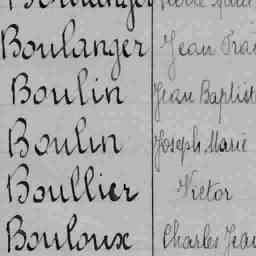 Boulanger
Boulanger Jean Fra
Boulin Jean Baptist
Boulin Joseph Marie
Boullier Victor
Bouloux Charles Jean